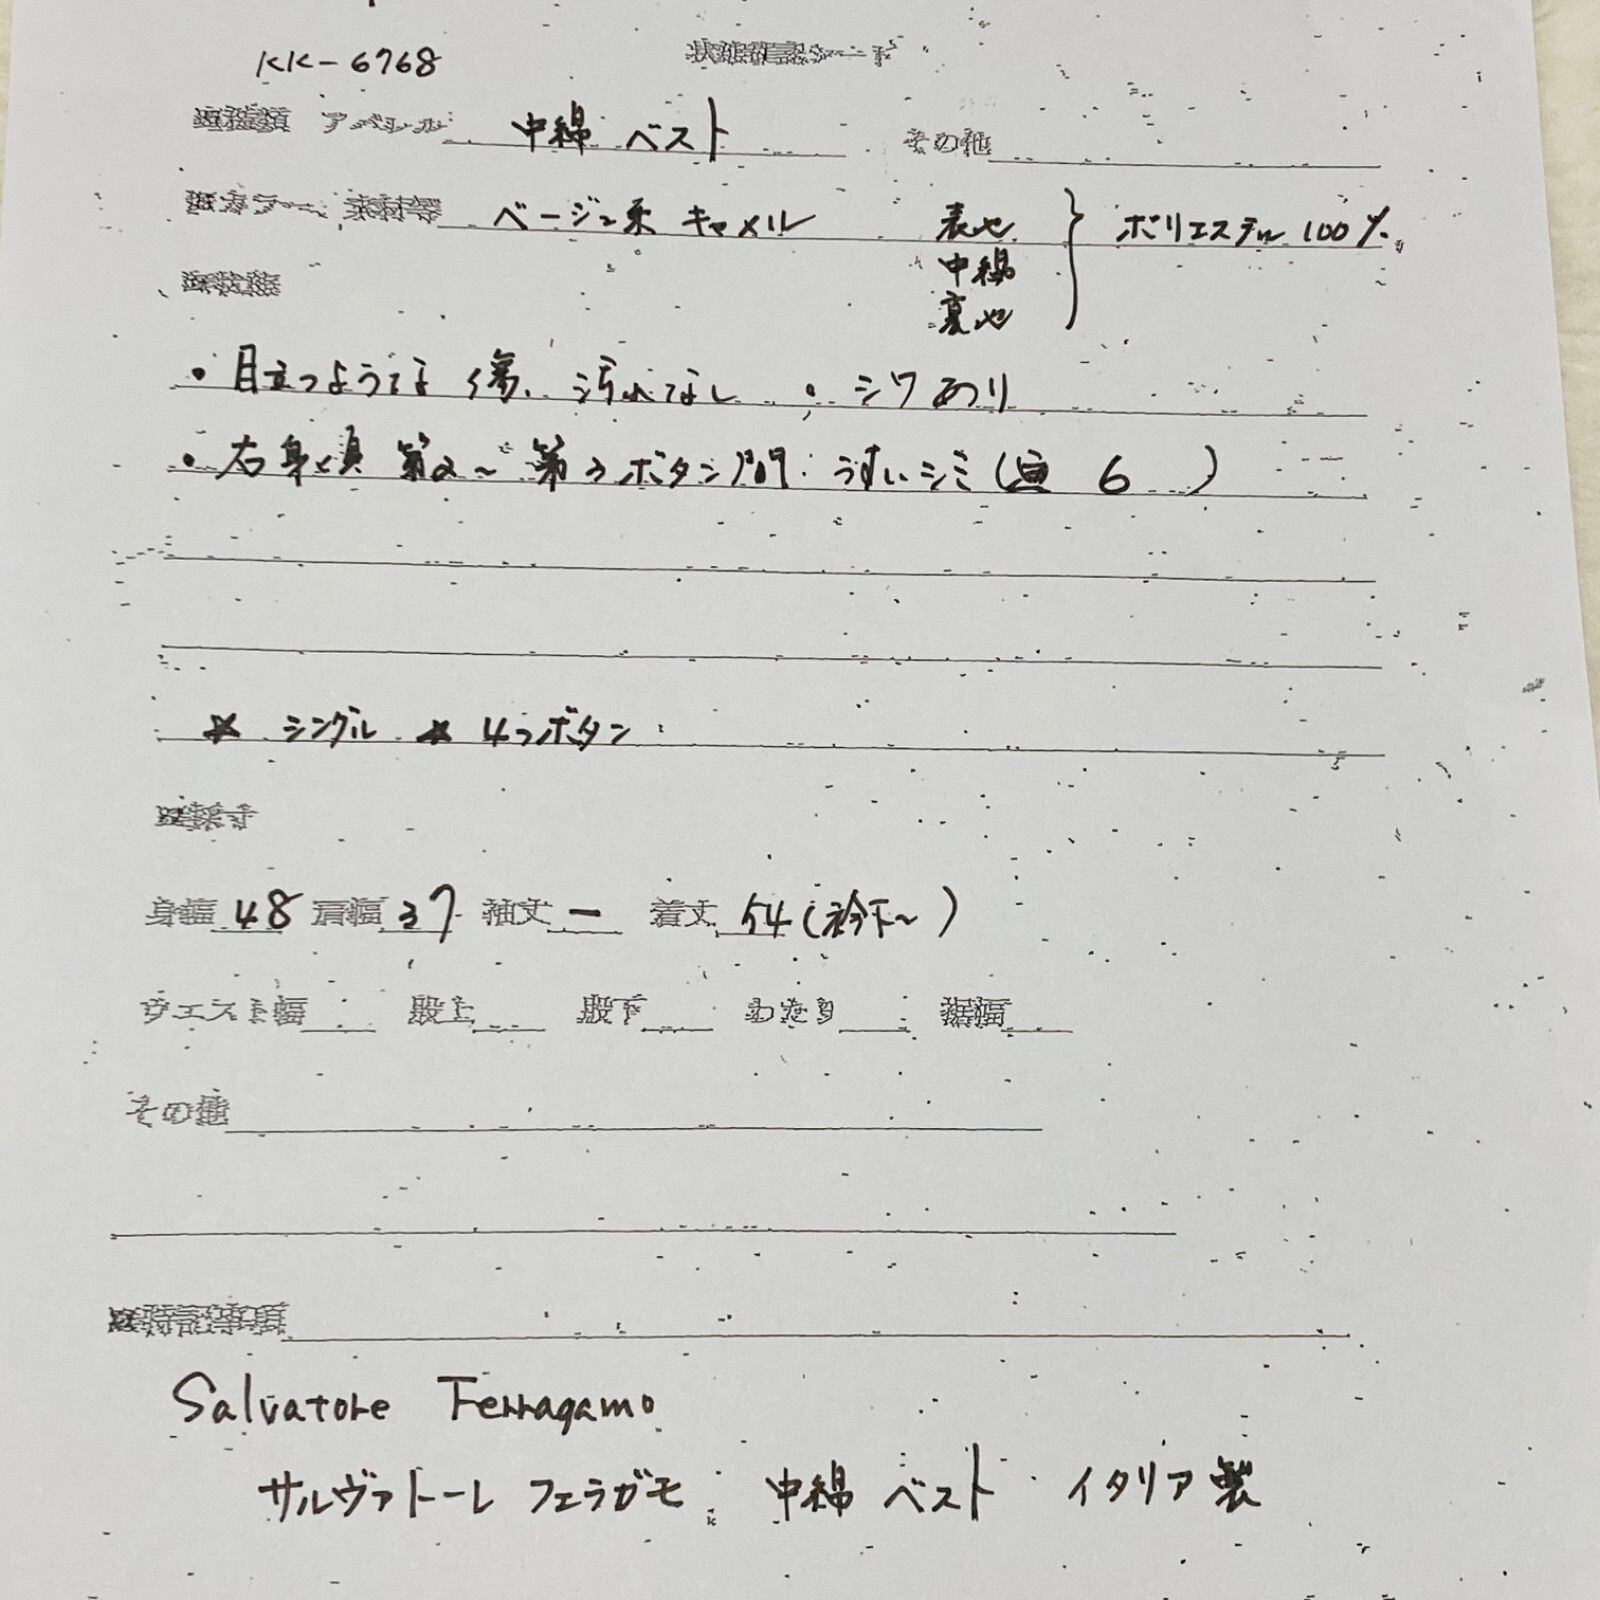 KK-6768
状態確認シート
アパレル 中綿 ベスト その他
カラー、素材等 ベージュ系 キャメル 表地 } ポリエステル 100%
中綿
裏地
・目立つような傷、汚れなし ・シワあり
・右身頃 第2〜第3ボタン間 うすいシミ(画 6 )
★ シングル ★ 4つボタン
■採寸
身幅 48 肩幅 37 袖丈 ー 着丈 54(衿下〜)
ウエスト幅 股上 股下 わたり 裾幅
その他
■特記事項
Salvatore Ferragamo
サルヴァトーレ フェラガモ 中綿 ベスト イタリア製